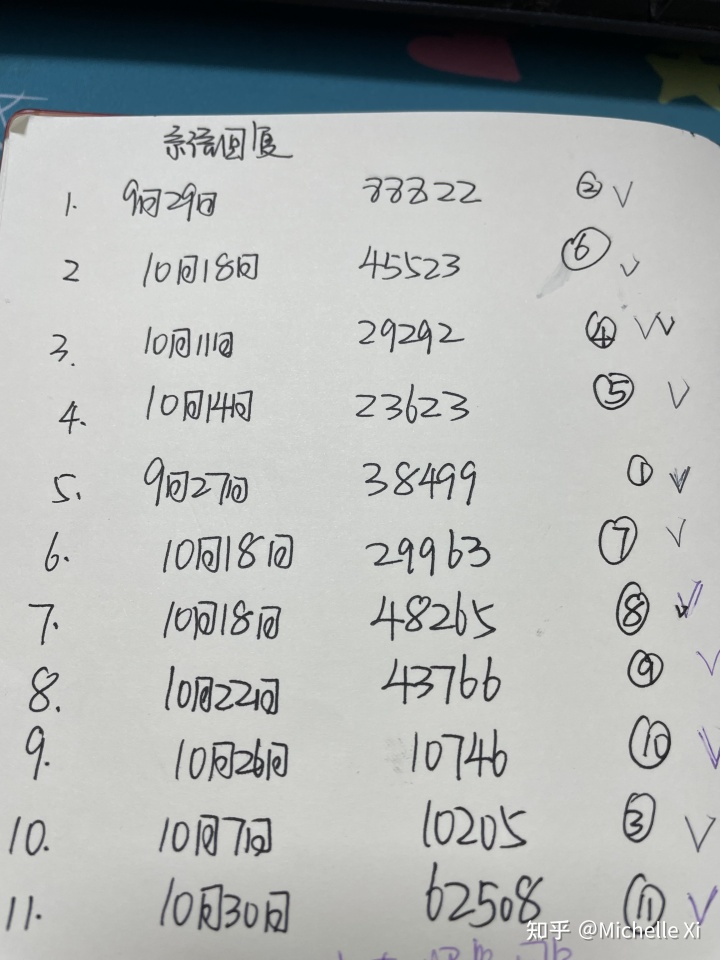 系统回复
1. 9月29日 38822 ② √
2 10月18日 45523 ⑥ √
3. 10月11日 29292 ④ √√
4. 10月14日 23623 ⑤ √
5. 9月27日 38499 ① √
6. 10月18日 29963 ⑦ √
7. 10月18日 48265 ⑧ √
8. 10月22日 43766 ⑨ √
9. 10月26日 10746 ⑩ √
10. 10月7日 10205 ③ √
11. 10月30日 62508 ⑪ √
知乎 @Michelle Xi